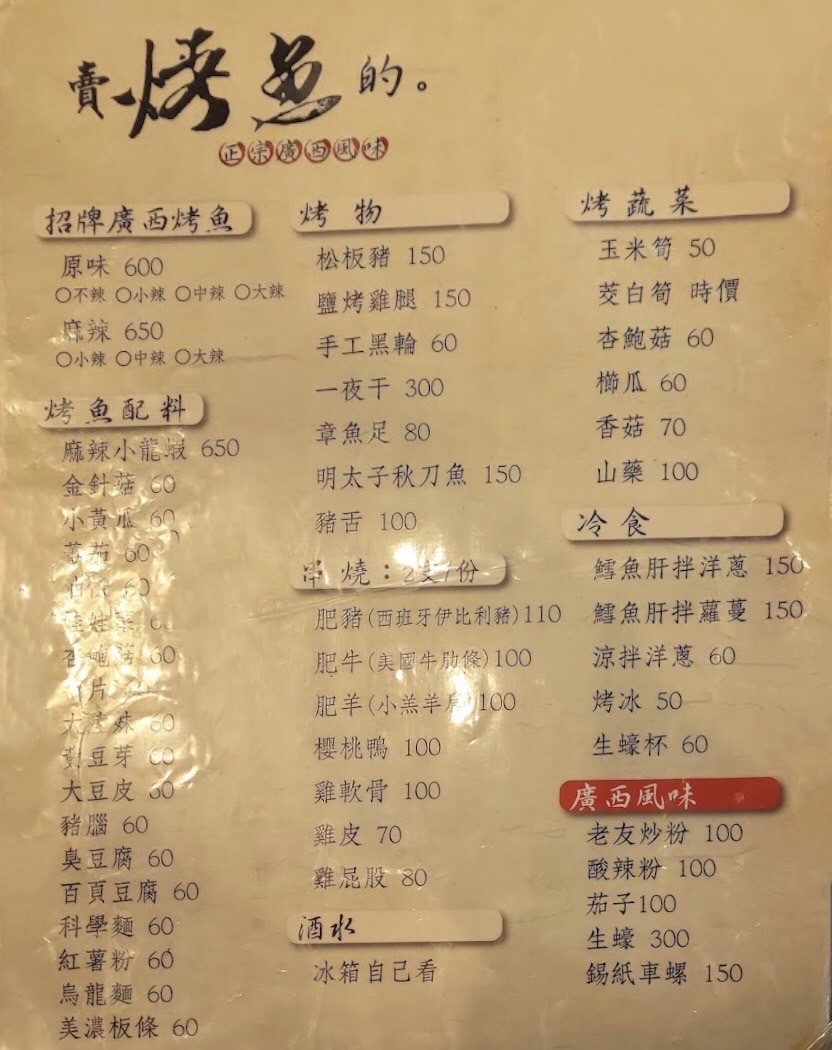 賣烤魚的。
正宗廣西風味
招牌廣西烤魚
原味 600
○不辣 ○小辣 ○中辣 ○大辣
麻辣 650
○小辣 ○中辣 ○大辣
烤魚配料
麻辣小龍蝦 650
金針菇 60
小黃瓜 60
蕃茄 60
60
娃娃菜 60
杏鮑菇 60
片
大陸妹 60
黃豆芽 60
大豆皮 60
豬腦 60
臭豆腐 60
百頁豆腐 60
科學麵 60
紅薯粉 60
烏龍麵 60
美濃板條 60
烤物
松板豬 150
鹽烤雞腿 150
手工黑輪 60
一夜干 300
章魚足 80
明太子秋刀魚 150
豬舌 100
串燒：2支/份
肥豬(西班牙伊比利豬)110
肥牛(美國牛肋條)100
肥羊(小羔羊肩)100
櫻桃鴨 100
雞軟骨 100
雞皮 70
雞屁股 80
酒水
冰箱自己看
烤蔬菜
玉米筍 50
茭白筍 時價
杏鮑菇 60
櫛瓜 60
香菇 70
山藥 100
冷食
鱈魚肝拌洋蔥 150
鱈魚肝拌蘿蔓 150
涼拌洋蔥 60
烤冰 50
生蠔杯 60
廣西風味
老友炒粉 100
酸辣粉 100
茄子100
生蠔 300
錫紙車螺 150